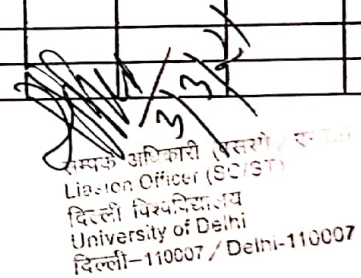 सम्पर्क अधिकारी
Liasion Officer (SC/ST)
दिल्ली विश्वविद्यालय
University of Delhi
दिल्ली-110007 / Delhi-110007